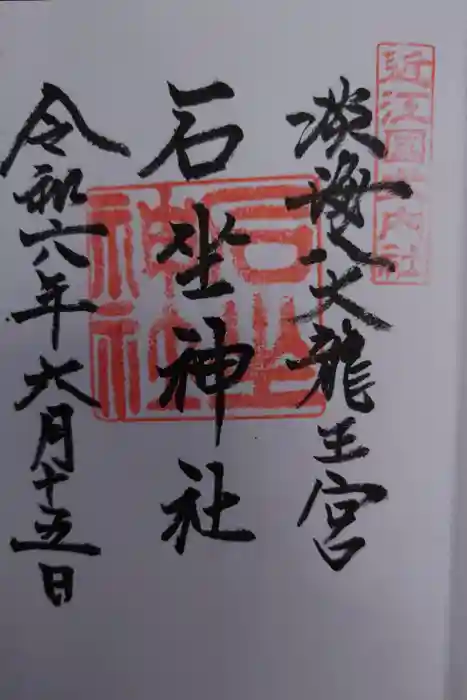 近江國式内社
淡海八大龍王宮
石坐神社
石坐
神社
令和六年六月十五日